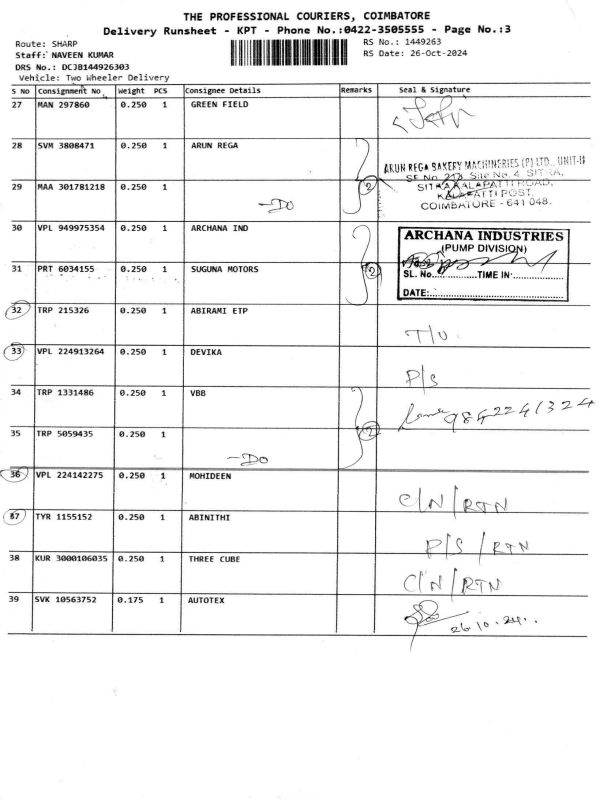 THE PROFESSIONAL COURIERS, COIMBATORE
Delivery Runsheet - KPT - Phone No.:0422-3505555 - Page No.:3
Route: SHARP
RS No.: 1449263
Staff: NAVEEN KUMAR
RS Date: 26-Oct-2024
DRS No.: DCJB144926303
Vehicle: Two Wheeler Delivery
S No Consignment No Weight PCS Consignee Details Remarks Seal & Signature
27 MAN 297860 0.250 1 GREEN FIELD
28 SVM 3808471 0.250 1 ARUN REGA
ARUN REGA BAKERY MACHINERIES (P) LTD., UNIT-II
SF No. 218, Site No. 4, SITRA,
29 MAA 301781218 0.250 1
SITRA KALAPATTI ROAD,
KALAPATTI POST,
- DO 2
COIMBATORE - 641 048.
30 VPL 949975354 0.250 1 ARCHANA IND
ARCHANA INDUSTRIES
(PUMP DIVISION)
31 PRT 6034155 0.250 1 SUGUNA MOTORS 2
SL. No. TIME IN:
DATE:
32 TRP 215326 0.250 1 ABIRAMI ETP
T/U
33 VPL 224913264 0.250 1 DEVIKA
P/S
34 TRP 1331486 0.250 1 VBB
9842241324
35 TRP 5059435 0.250 1 2
- DO
36 VPL 224142275 0.250 1 MOHIDEEN
C/N/RTN
37 TYR 1155152 0.250 1 ABINITHI
P/S/RTN
38 KUR 3000106035 0.250 1 THREE CUBE
C/N/RTN
39 SVK 10563752 0.175 1 AUTOTEX
26.10.24..